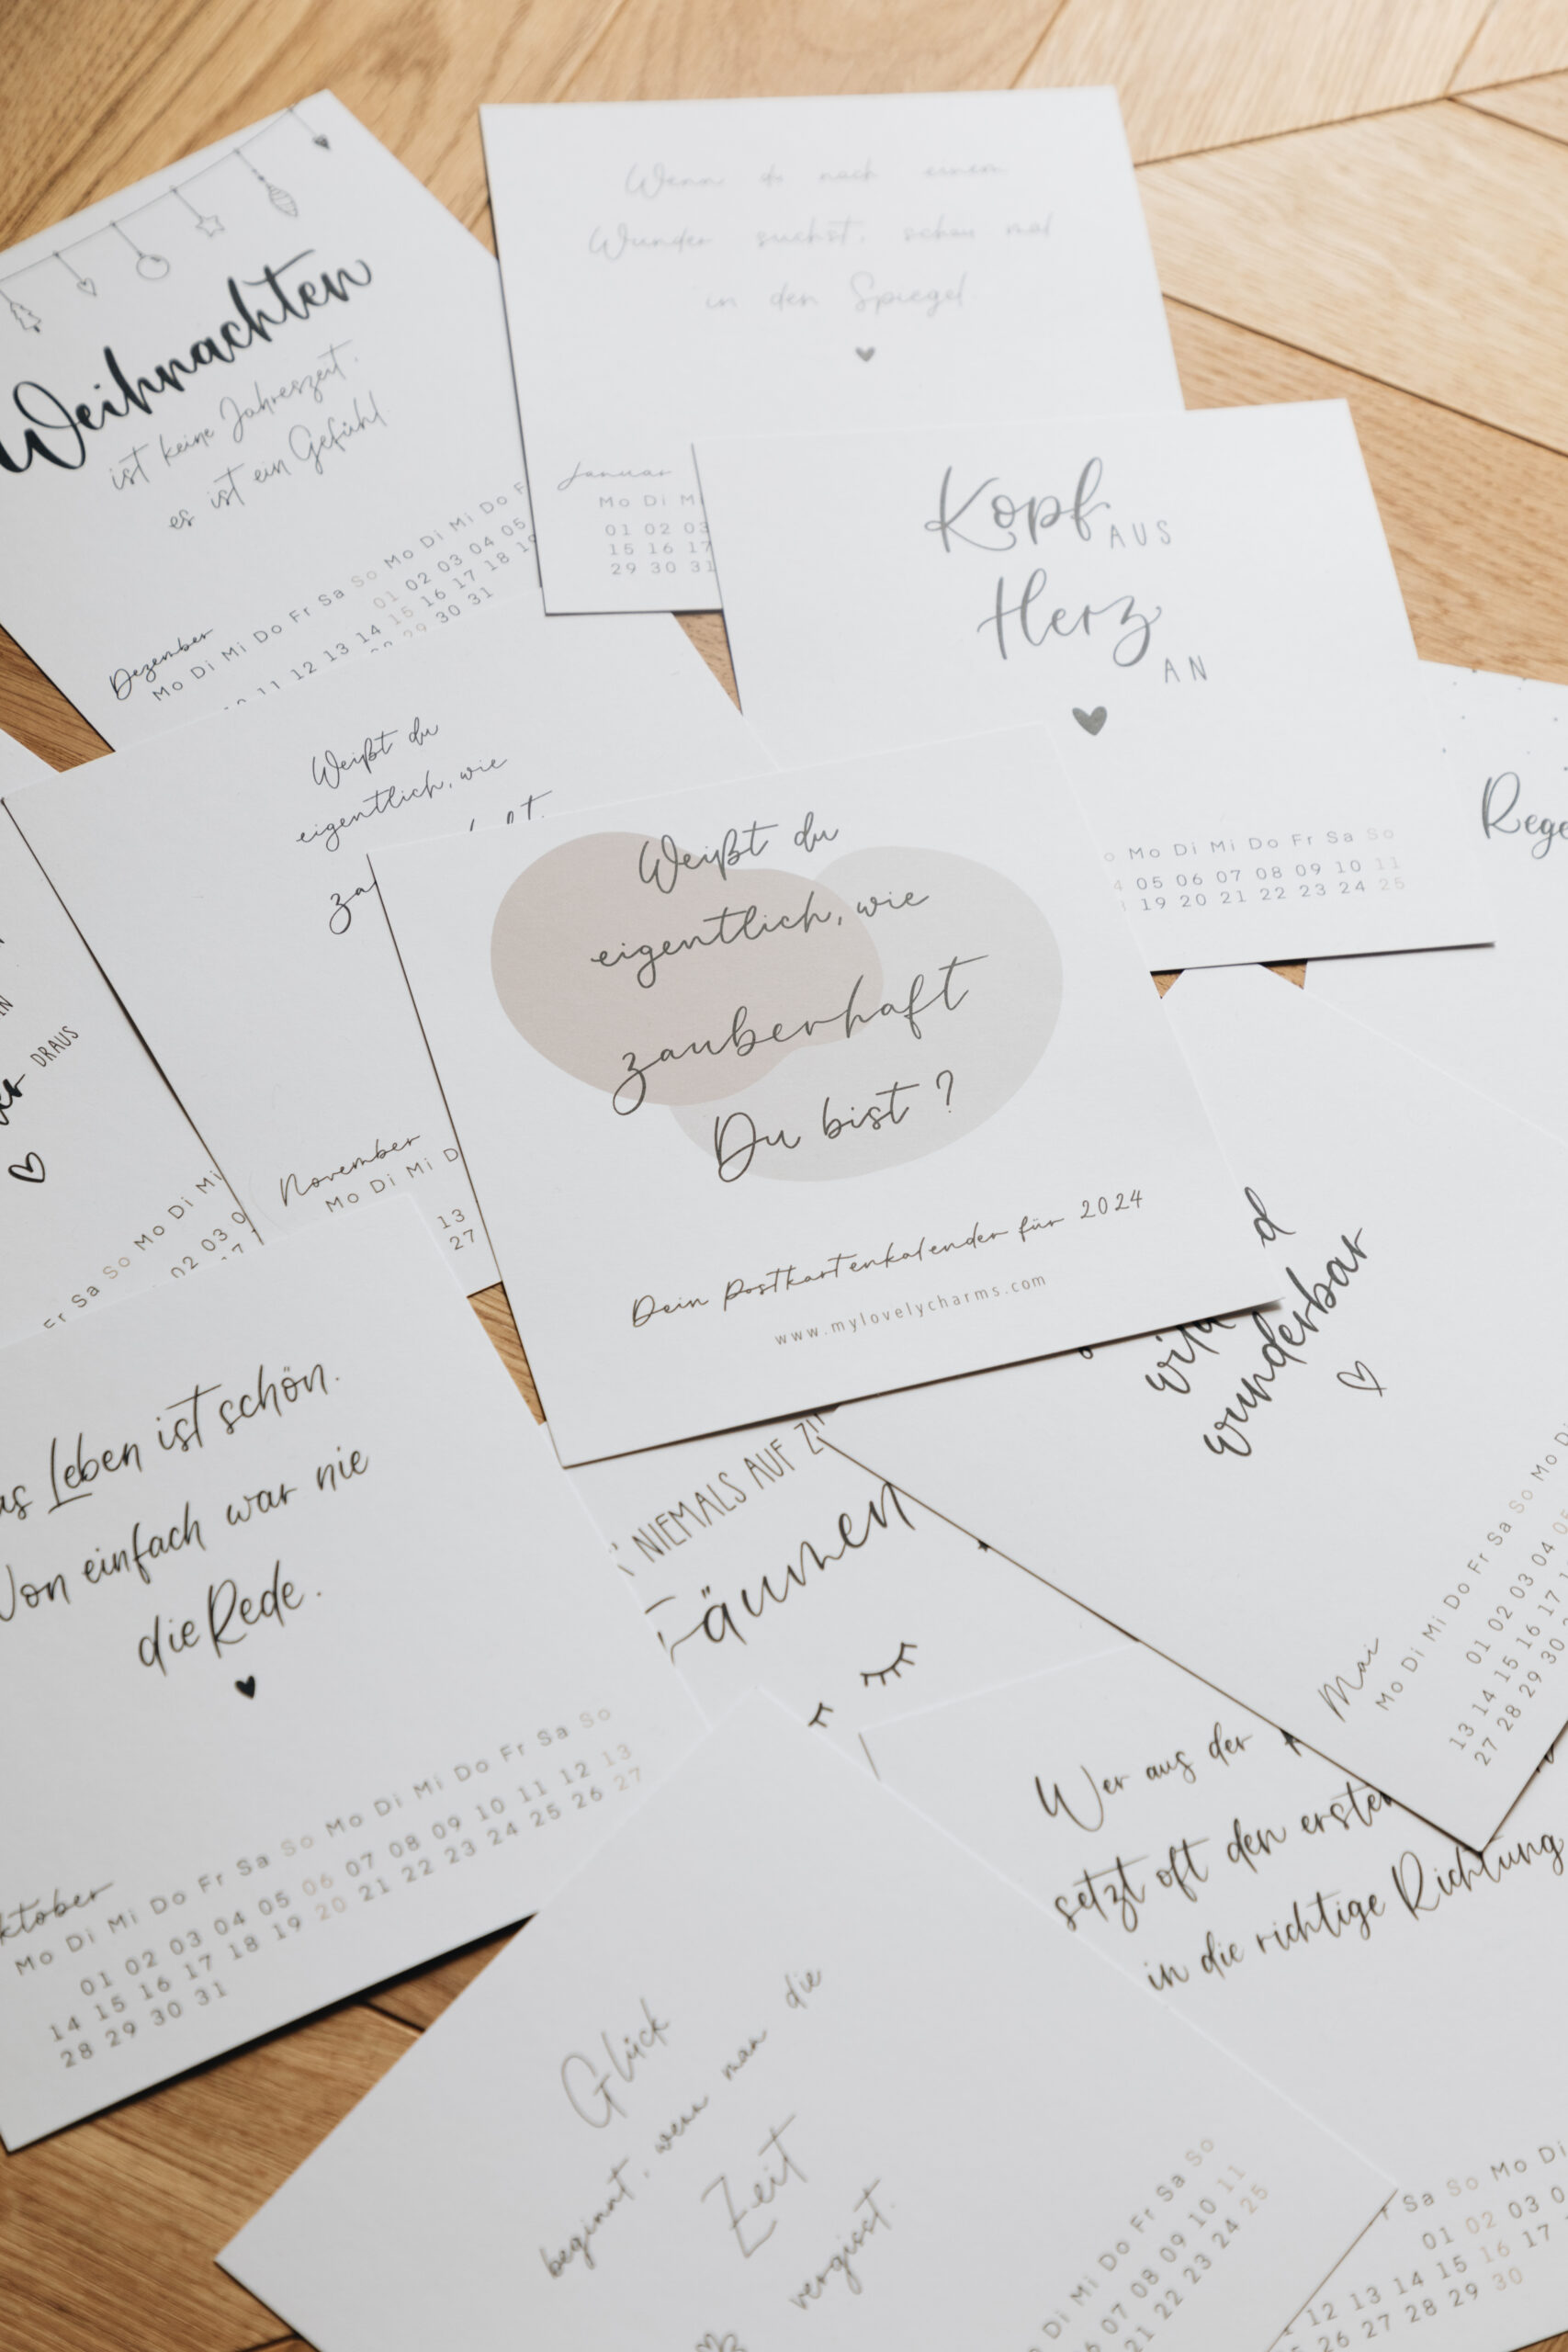 Weihnachten
ist keine Jahreszeit.
es ist ein Gefühl
Dezember
Mo Di Mi Do Fr Sa So Mo Di Mi Do F
01 02 03 04 05
11 12 13 14 15 16 17 18 19
29 30 31
Wenn du nach einem
Wunder suchst, schau mal
in den Spiegel.
Januar
Mo Di M
01 02 03
15 16 17
29 30 31
Kopf AUS
Herz AN
Mo Di Mi Do Fr Sa So
05 06 07 08 09 10 11
19 20 21 22 23 24 25
Rege
Weißt du
eigentlich, wie
za
November
Mo Di Mi D
13
27
DRAUS
Fr Sa So Mo Di Mi
02 03 0
Weißt du
eigentlich, wie
zauberhaft
Du bist ?
Dein Postkartenkalender für 2024
www.mylovelycharms.com
d
wild
wunderbar
Mai
Mo Di Mi Do Fr Sa So Mo Di
01 02 03 04 05
13 14 15 16 17
27 28 29 30
as Leben ist schön.
Von einfach war nie
die Rede.
ktober
Mo Di Mi Do Fr Sa So Mo Di Mi Do Fr Sa So
01 02 03 04 05 06 07 08 09 10 11 12 13
14 15 16 17 18 19 20 21 22 23 24 25 26 27
28 29 30 31
NIEMALS AUF Z
äumen
Wer aus der
setzt oft den ersten
in die richtige Richtung
Sa So Mo Di
01 02 03 0
12 13 14 15 16 17
26 27 28 29 30
Glück
beginnt, wenn man die
Zeit
vergisst.
Di Mi Do Fr Sa So
06 07 08 09 10 11
21 22 23 24 25